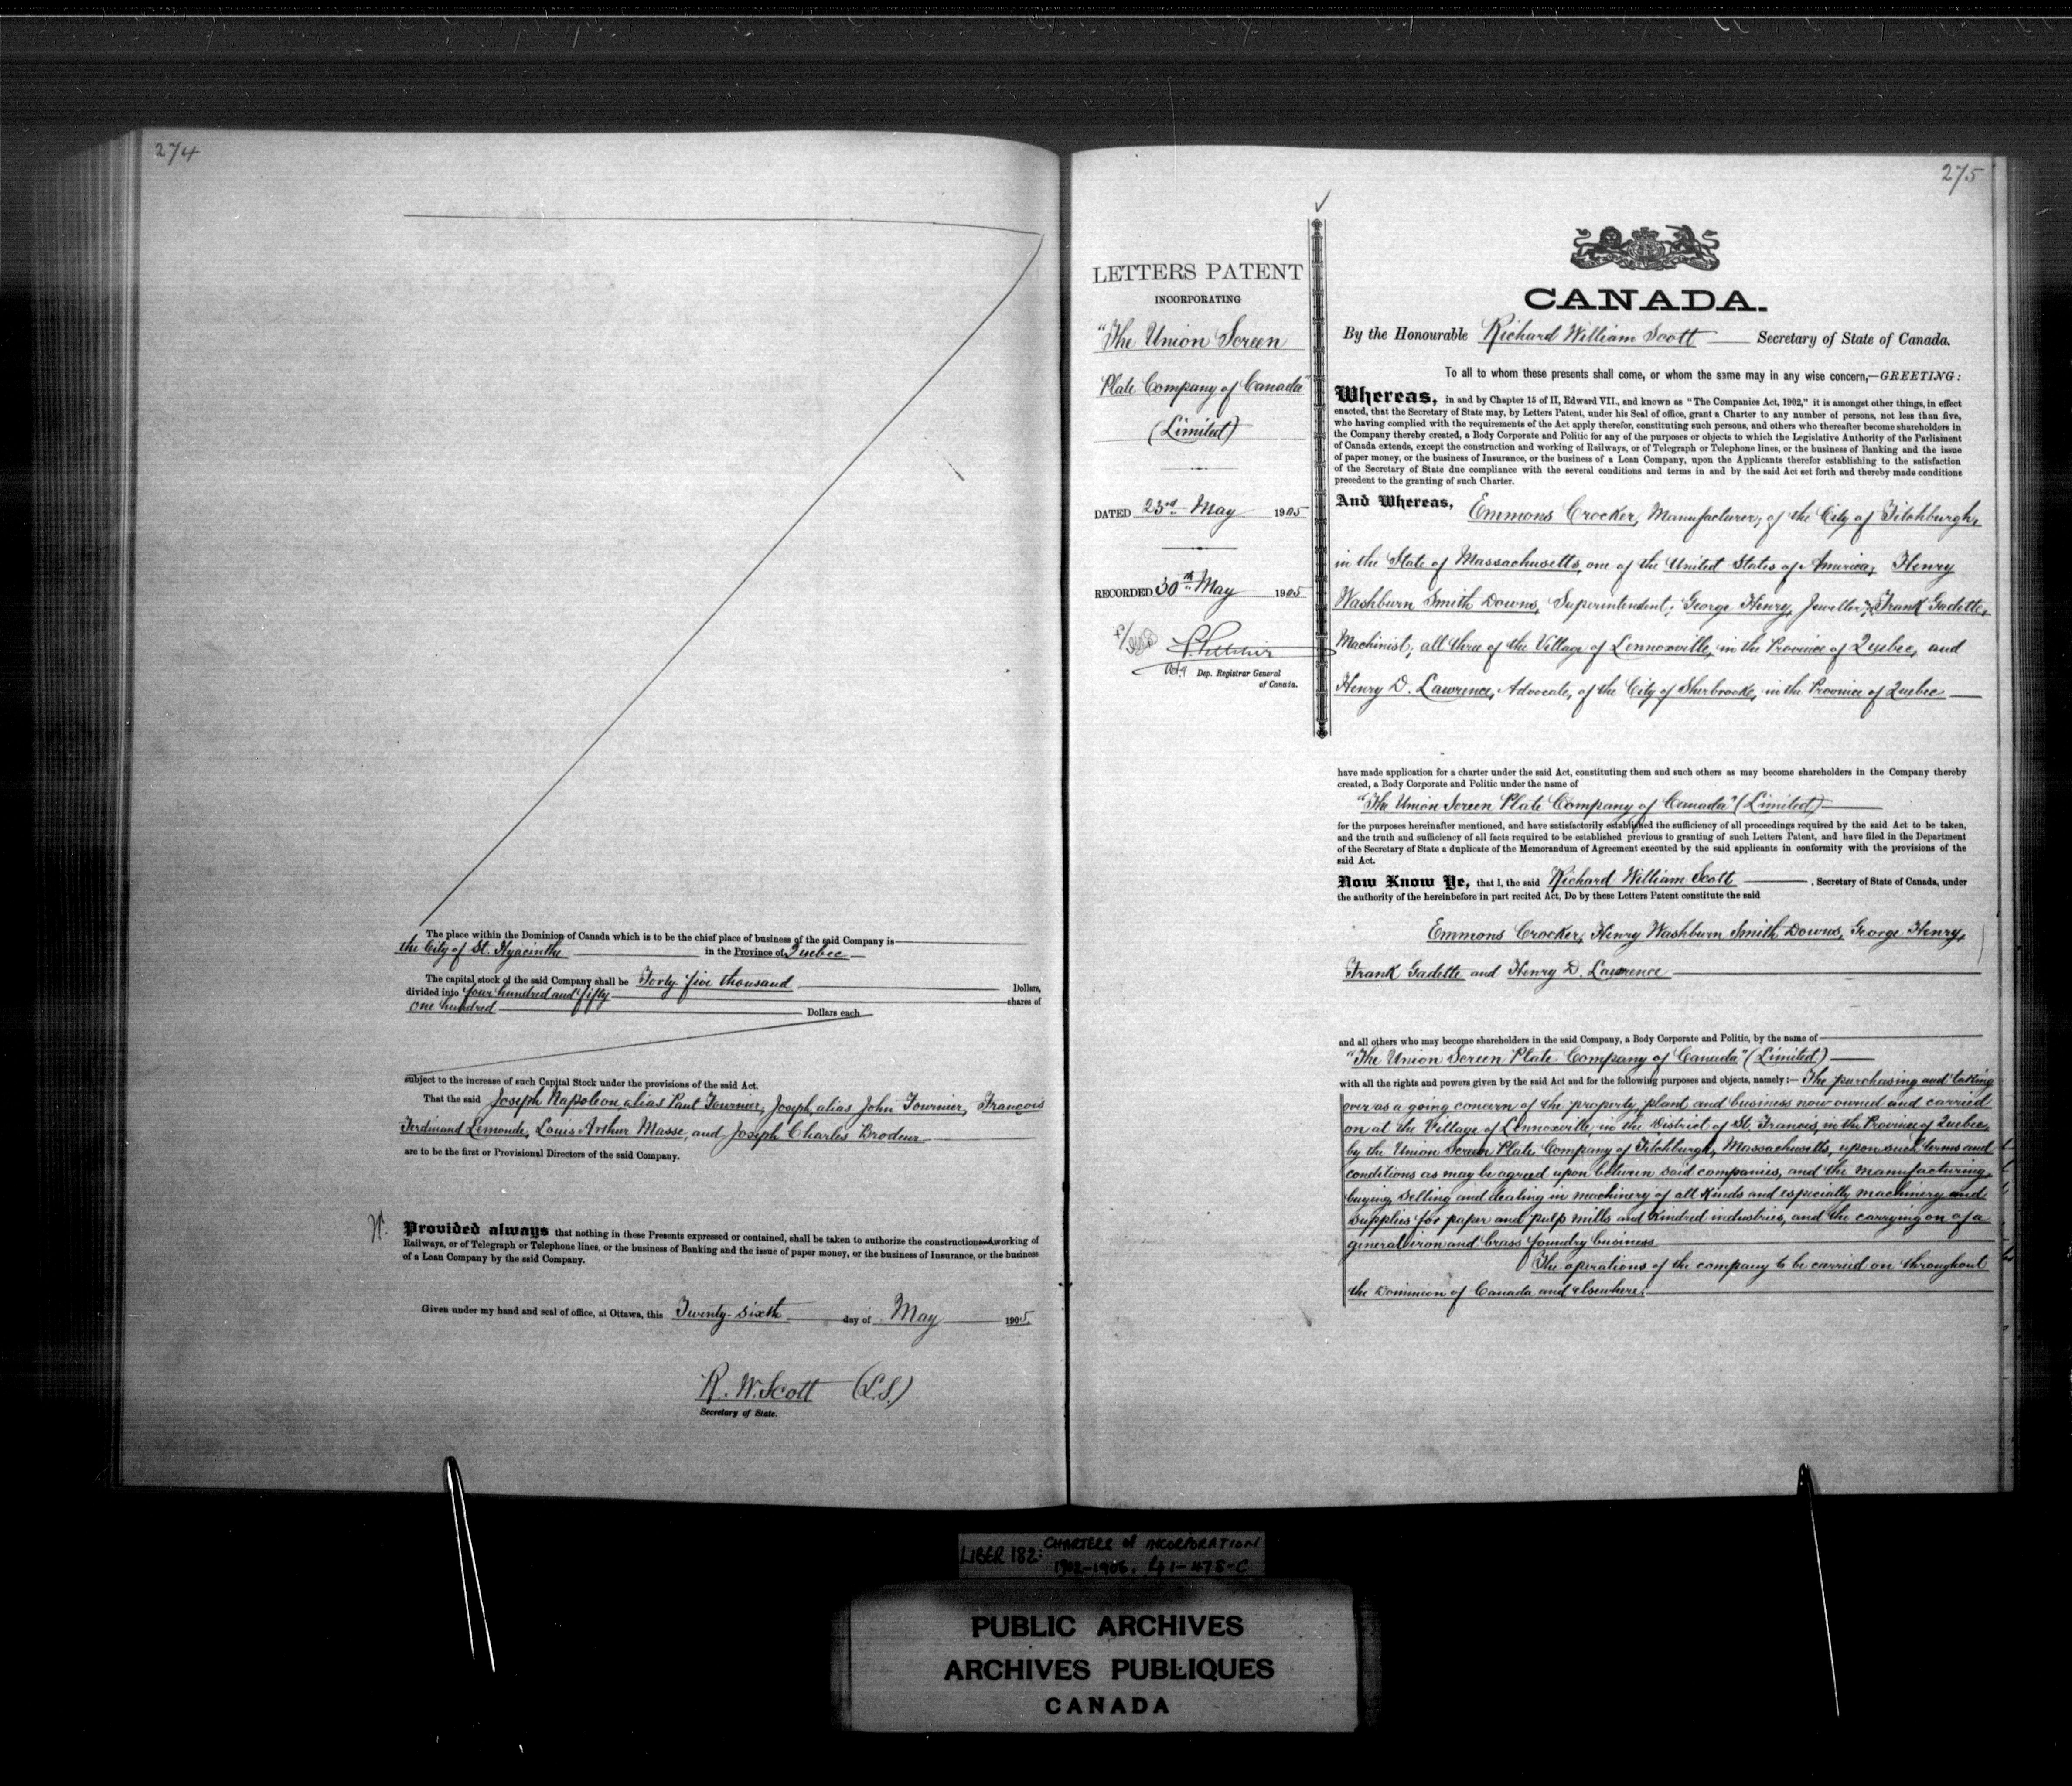 274
The place within the Dominion of Canada which is to be the chief place of business of the said Company is
the City of St. Hyacinthe in the Province of Quebec
The capital stock of the said Company shall be Forty five thousand Dollars,
divided into four hundred and fifty shares of
one hundred Dollars each
subject to the increase of such Capital Stock under the provisions of the said Act.
That the said Joseph Napoleon alias Paul Fournier, Joseph, alias John Fournier, François
Ferdinand Lemonde, Louis Arthur Masse, and Joseph Charles Brodeur
are to be the first or Provisional Directors of the said Company.
Provided always that nothing in these Presents expressed or contained, shall be taken to authorize the construction and working of
Railways, or of Telegraph or Telephone lines, or the business of Banking and the issue of paper money, or the business of Insurance, or the business
of a Loan Company by the said Company.
Given under my hand and seal of office, at Ottawa, this Twenty-sixth day of May 1905
R. W. Scott (L.S.)
Secretary of State.
275
LETTERS PATENT
INCORPORATING
"The Union Screen
Plate Company of Canada"
(Limited)
DATED 23rd May 1905
RECORDED 30th May 1905
Actg Dep. Registrar General
of Canada.
CANADA.
By the Honourable Richard William Scott Secretary of State of Canada.
To all to whom these presents shall come, or whom the same may in any wise concern,—GREETING:
Whereas, in and by Chapter 15 of II, Edward VII., and known as "The Companies Act, 1902," it is amongst other things, in effect
enacted, that the Secretary of State may, by Letters Patent, under his Seal of office, grant a Charter to any number of persons, not less than five,
who having complied with the requirements of the Act apply therefor, constituting such persons, and others who thereafter become shareholders in
the Company thereby created, a Body Corporate and Politic for any of the purposes or objects to which the Legislative Authority of the Parliament
of Canada extends, except the construction and working of Railways, or of Telegraph or Telephone lines, or the business of Banking and the issue
of paper money, or the business of Insurance, or the business of a Loan Company, upon the Applicants therefor establishing to the satisfaction
of the Secretary of State due compliance with the several conditions and terms in and by the said Act set forth and thereby made conditions
precedent to the granting of such Charter.
And Whereas, Emmons Crocker, Manufacturer, of the City of Fitchburgh,
in the State of Massachusetts, one of the United States of America; Henry
Washburn Smith Downs, Superintendent; George Henry, Jeweller; Frank Gadette,
Machinist; all three of the Village of Lennoxville, in the Province of Quebec, and
Henry D. Lawrence, Advocate, of the City of Sherbrooke, in the Province of Quebec
have made application for a charter under the said Act, constituting them and such others as may become shareholders in the Company thereby
created, a Body Corporate and Politic under the name of
"The Union Screen Plate Company of Canada" (Limited)
for the purposes hereinafter mentioned, and have satisfactorily established the sufficiency of all proceedings required by the said Act to be taken,
and the truth and sufficiency of all facts required to be established previous to granting of such Letters Patent, and have filed in the Department
of the Secretary of State a duplicate of the Memorandum of Agreement executed by the said applicants in conformity with the provisions of the
said Act.
Now Know Ye, that I, the said Richard William Scott, Secretary of State of Canada, under
the authority of the hereinbefore in part recited Act, Do by these Letters Patent constitute the said
Emmons Crocker, Henry Washburn Smith Downs, George Henry,
Frank Gadette and Henry D. Lawrence
and all others who may become shareholders in the said Company, a Body Corporate and Politic, by the name of
"The Union Screen Plate Company of Canada" (Limited)
with all the rights and powers given by the said Act and for the following purposes and objects, namely:— The purchasing and taking
over as a going concern of the property, plant and business now owned and carried
on at the Village of Lennoxville, in the District of St. Francis, in the Province of Quebec,
by the Union Screen Plate Company of Fitchburgh, Massachusetts, upon such terms and
conditions as may be agreed upon between said companies, and the manufacturing,
buying, selling and dealing in machinery of all kinds and especially machinery and
supplies for paper and pulp mills and kindred industries, and the carrying on of a
general iron and brass foundry business
The operations of the company to be carried on throughout
the Dominion of Canada and elsewhere.
LIBER 182: CHARTERS of INCORPORATION
1902-1906.
PUBLIC ARCHIVES
ARCHIVES PUBLIQUES
CANADA